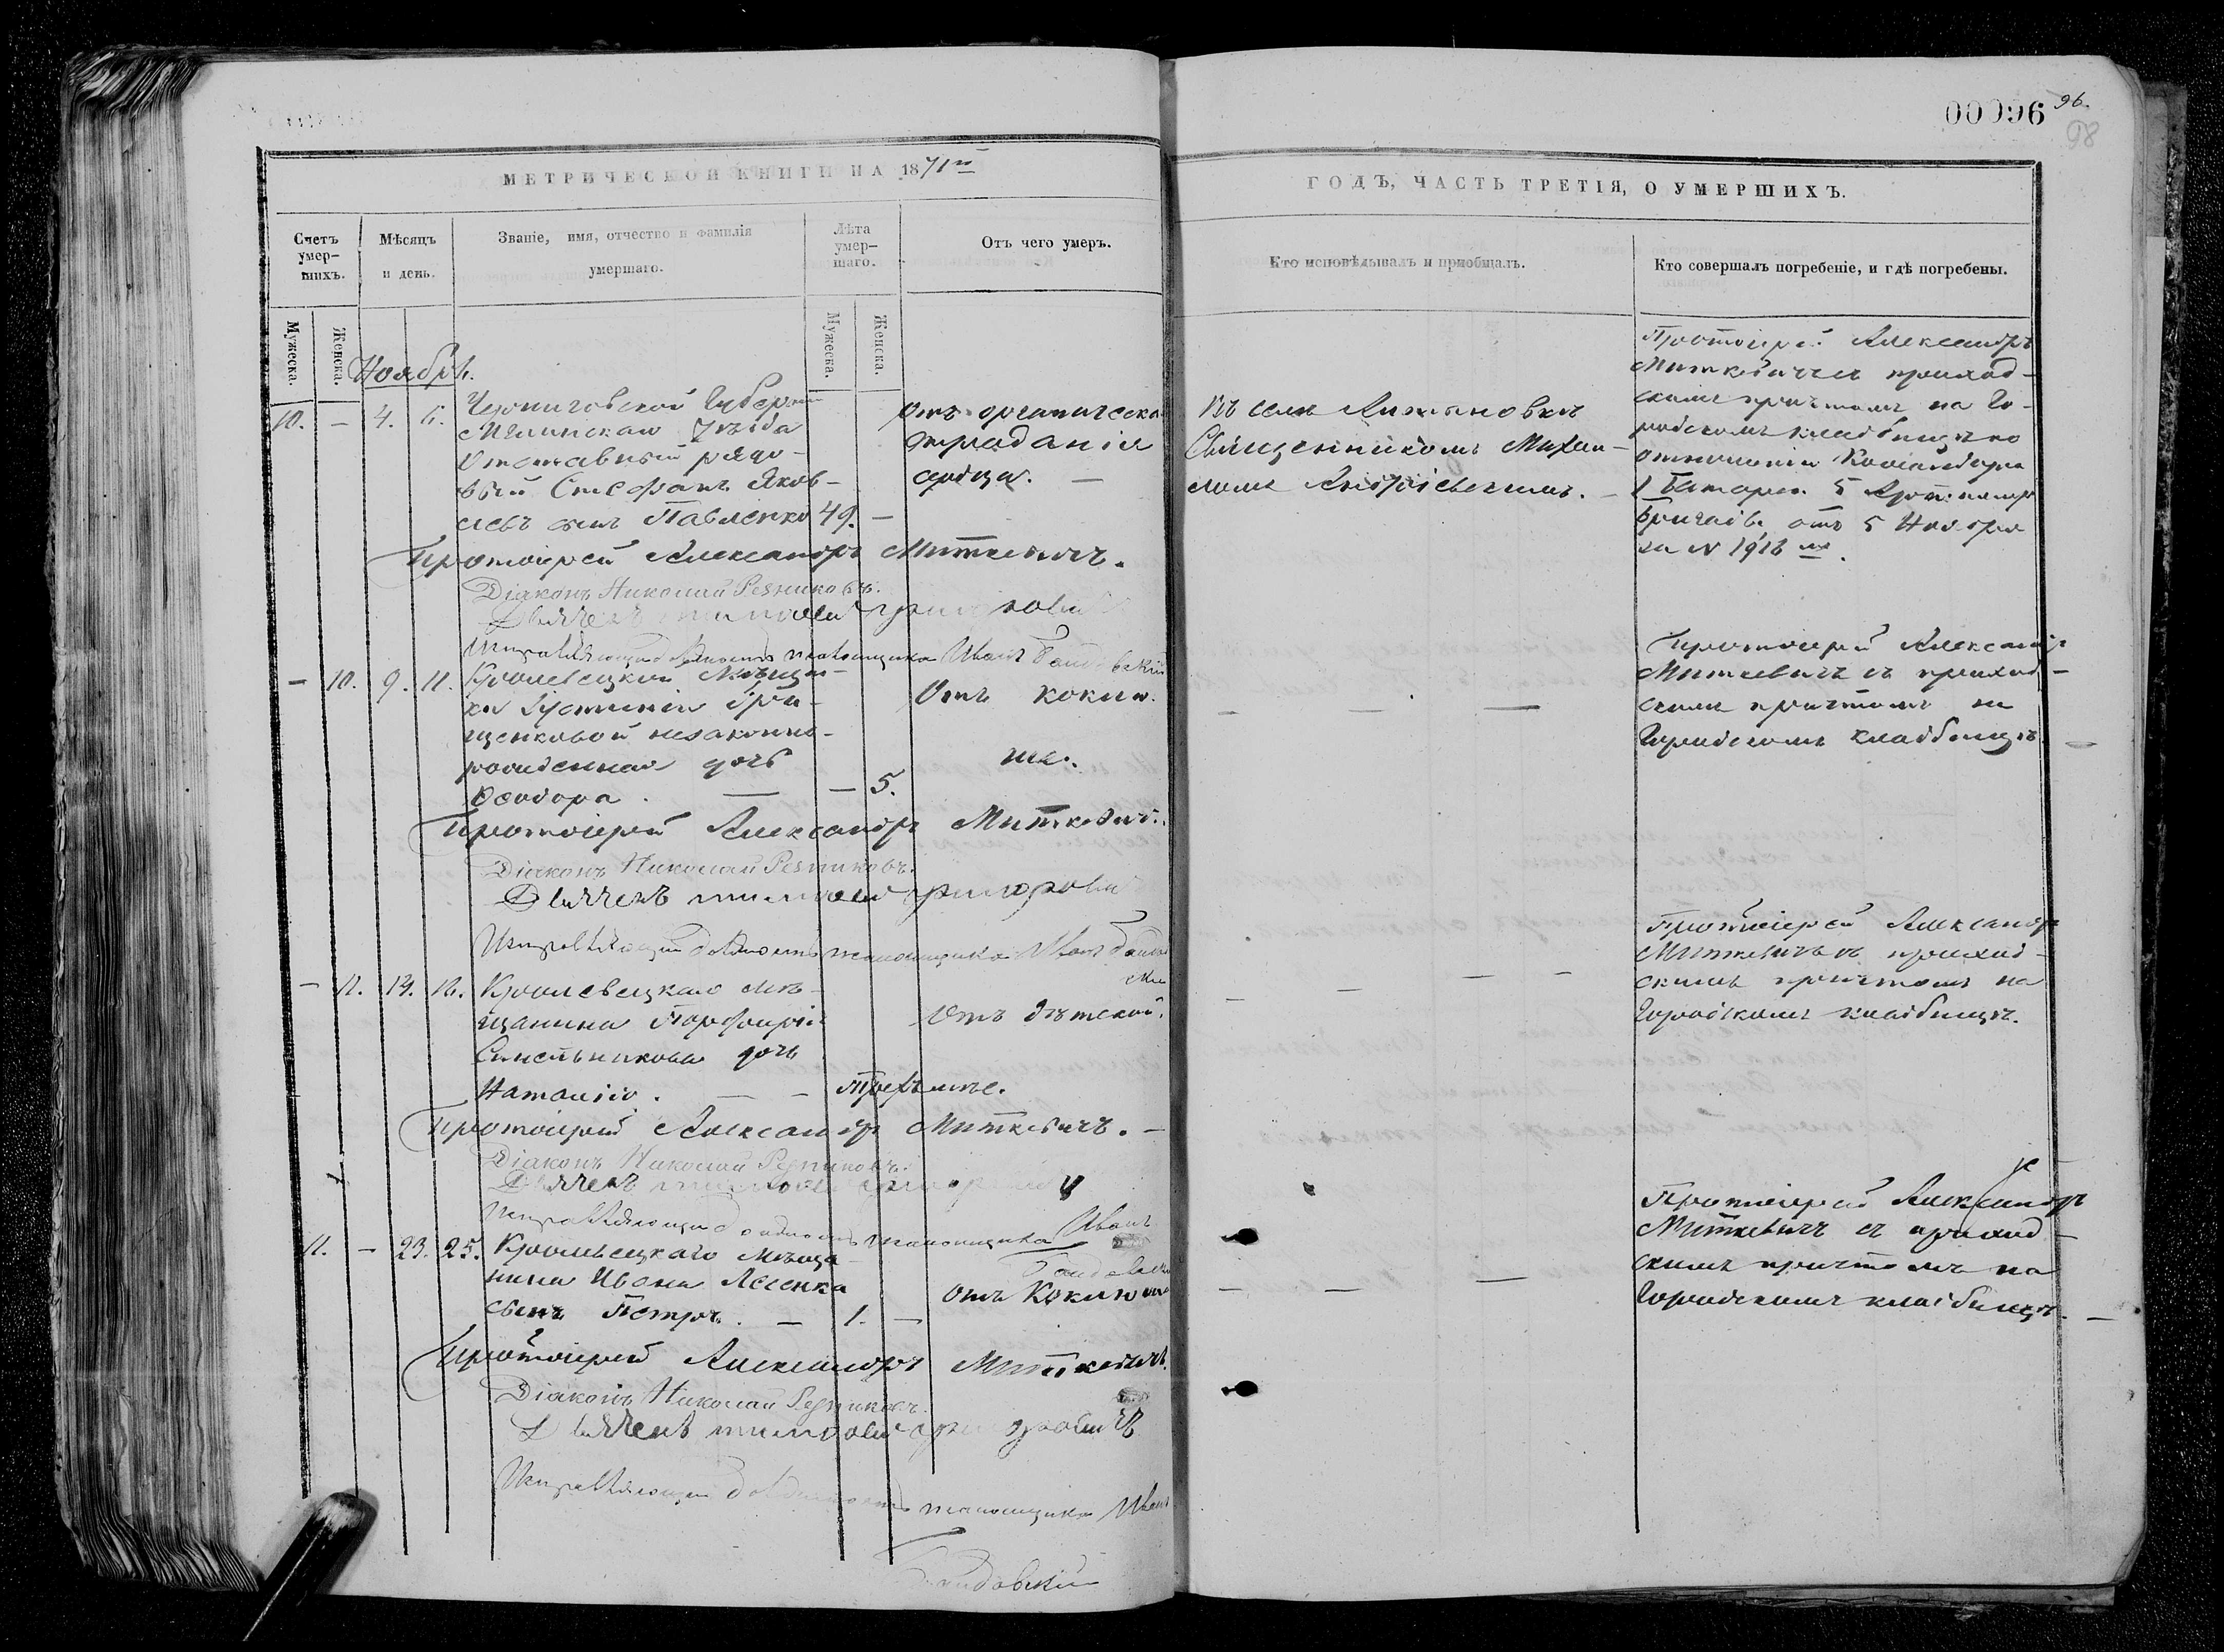 00096 96.
98
МЕТРИЧЕСКОЙ КНИГИ НА 1871й
ГОДЪ, ЧАСТЬ ТРЕТІЯ, О УМЕРШИХЪ.
Счетъ умер-
шихъ.
Мѣсяцъ
и день.
Званіе, имя, отчество и фамилія
умершаго.
Лѣта
умер-
шаго.
Отъ чего умеръ.
Кто исповѣдывалъ и пріобщалъ.
Кто совершалъ погребеніе, и гдѣ погребены.
Мужеска.
Женска.
Мужеска.
Женска.
Ноябрь.
10. — 4. 6.
Черниговской Губерніи
Мглинскаго Уѣзда
Отставный рядо-
вый Стефанъ Яков-
левъ сынъ Павленко 49. —
Отъ органическа
страданія
сердца. —
Въ селѣ
Священникомъ Михаи-
ломъ
Протоіерей Александръ
Миткевичъ съ приход-
скимъ причтомъ на Го-
родскомъ кладбищѣ по
отношенію Командира
1 Батареи 5
отъ 5 Ноября
за N 1916 мъ.
Протоіерей Александръ Миткевичъ.
Діаконъ Николай Резниковъ.
Дьячекъ Григоровичъ
Исправляющій должность пономаря Иванъ
— 10. 9. 11.
Кролевецкой Мѣщан-
ки Іустиніи
щенковой незаконно-
рожденная дочь
Ѳеодора. — — 5.
Отъ коклю-
ша.
— — —
Протоіерей Александръ
Миткевичъ съ приход-
скимъ причтомъ на
Городскомъ кладбищѣ. —
Протоіерей Александръ Миткевичъ.
Діаконъ Николай Резниковъ.
Дьячекъ Григоровичъ
Исправляющій должность Иванъ
— 11. 14. 16.
Кролевецкаго мѣ-
щанина Порфирія
дочь
Наталія. — — Трехъ лѣтъ.
Отъ дѣтской.
— — — —
Протоіерей Александръ
Миткевичъ съ приход-
скимъ причтомъ на
Городскомъ кладбищѣ.
Протоіерей Александръ Миткевичъ. —
Діаконъ Николай Резниковъ.
Дьячекъ
Исправляющій должность Иванъ
11. — 23. 25.
Кролевецкаго Мѣща-
нина Ивана Лесенка
сынъ Петръ. — 1. —
отъ Коклюша
— — —
Протоіерей Александръ
Миткевичъ съ приход-
скимъ причтомъ на
Городскомъ кладбищѣ. —
Протоіерей Александръ Миткевичъ.
Діаконъ Николай Резниковъ.
Дьячекъ Григоровичъ
Исправляющій должность Иванъ